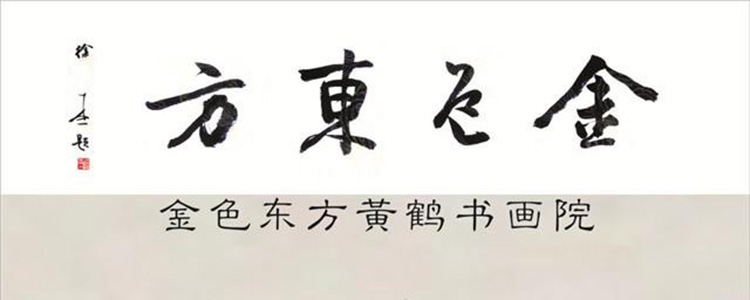 金色東方
徐本一题
金色东方黄鹤书画院